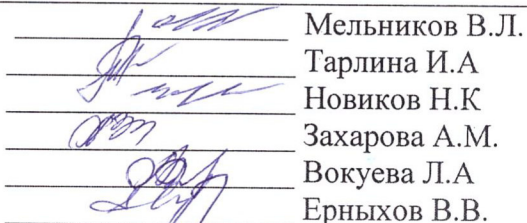 Мельников В.Л.
Тарлина И.А
Новиков Н.К
Захарова А.М.
Вокуева Л.А
Ерныхов В.В.